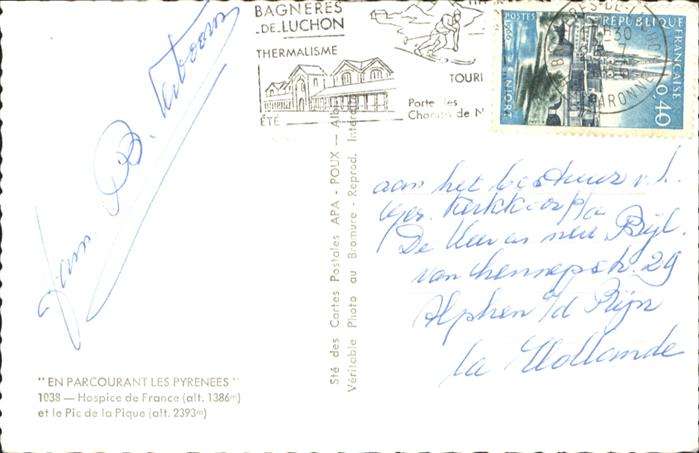 BAGNERES
DE LUCHON
THERMALISME
ÉTÉ
TOURI
Porte des
Chemin de N
POSTES
1966
REPUBLIQUE
FRANÇAISE
NIORT
0,40
GARONNE
B.
aan het bestuur v.h.
Ger. Kerkkoor p/a
De Heer
Bijl.
van Hennepstr. 29
Alphen a/d Rijn
la Hollande
Sté des Cartes Postales APA - POUX - Al
Véritable Photo au Bromure - Reprod. Inter
" EN PARCOURANT LES PYRENEES "
1038 — Hospice de France (alt. 1386m)
et le Pic de la Pique (alt. 2393m)